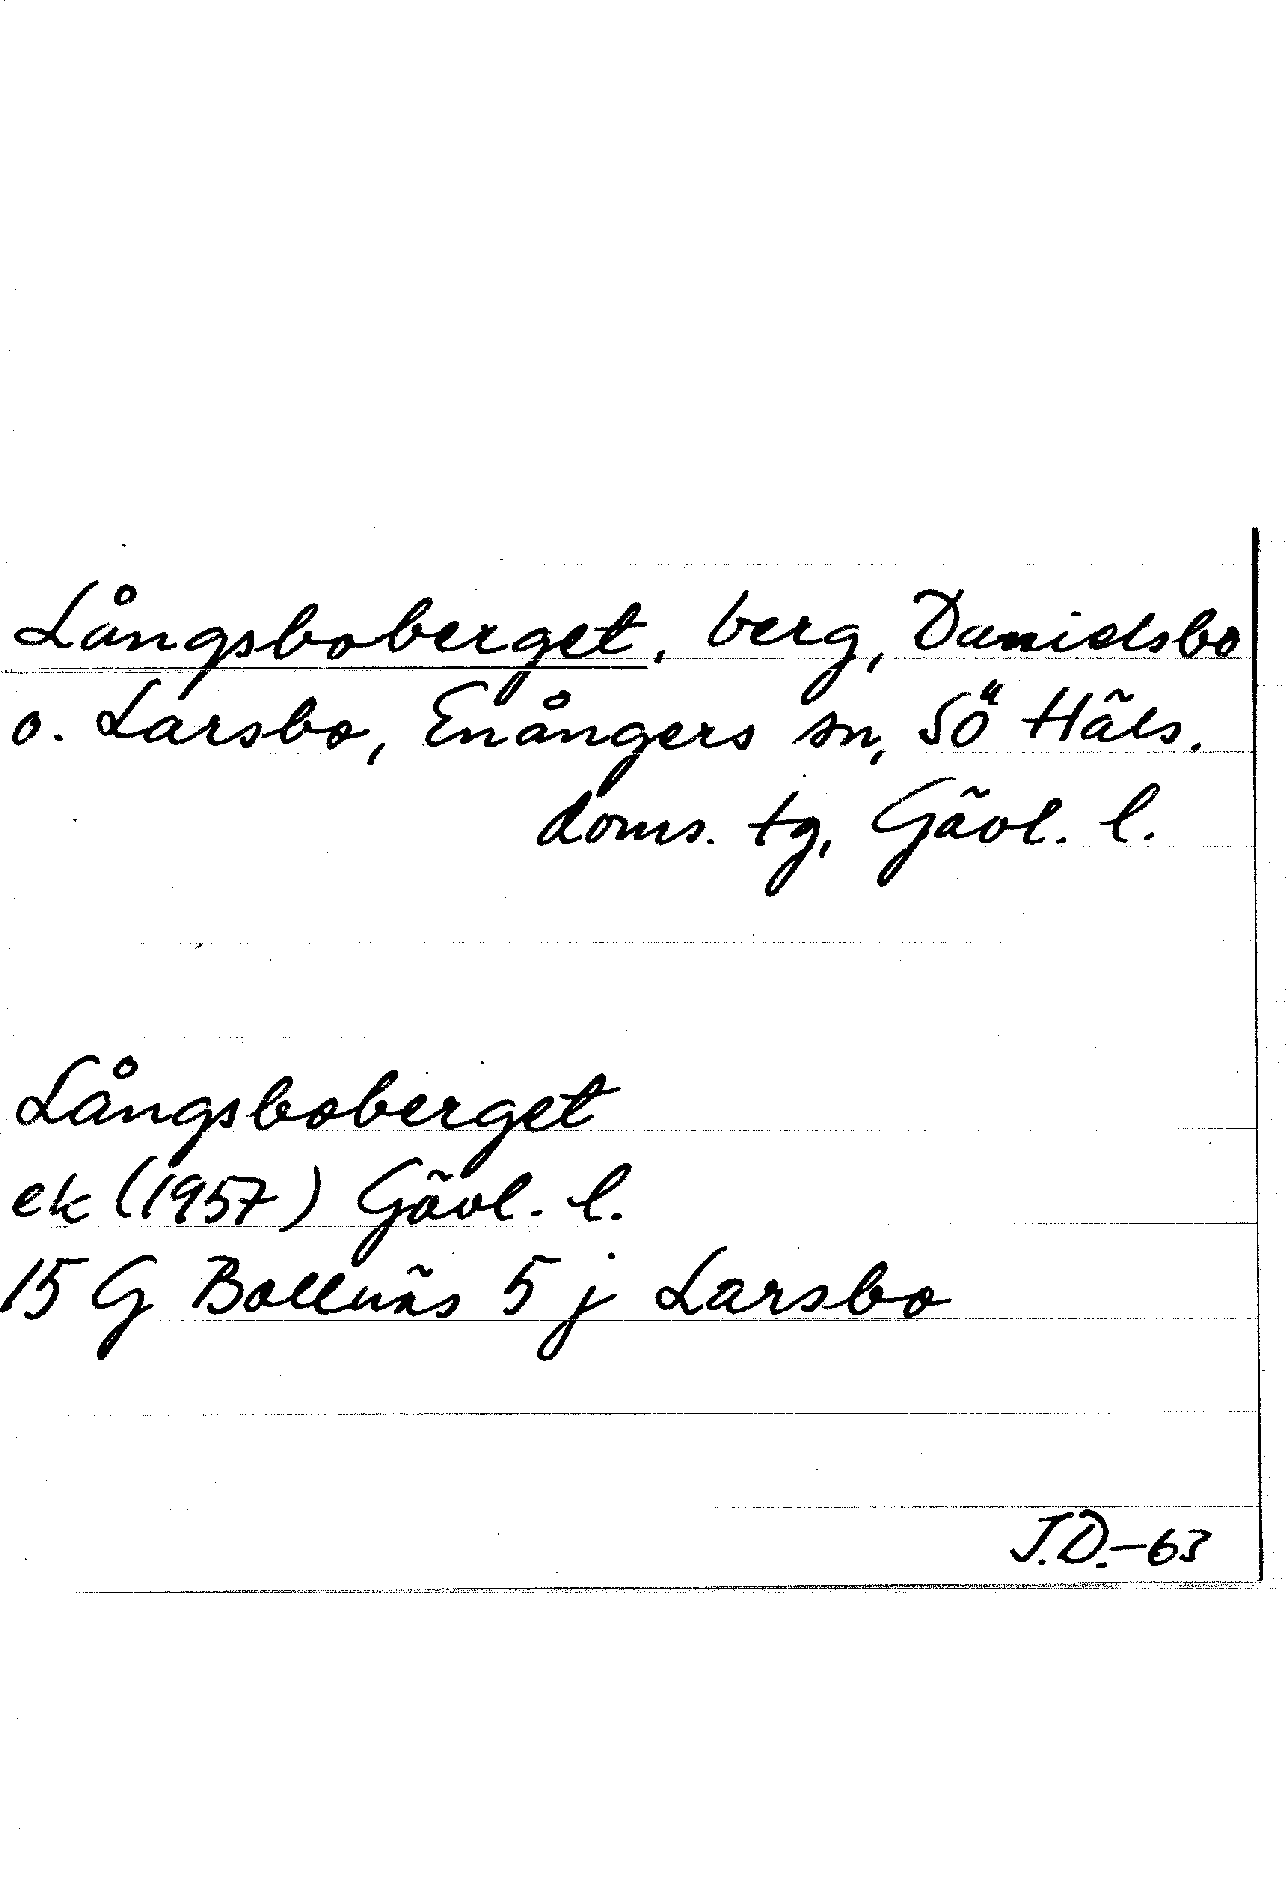 Långsboberget, berg, Danielsbo
o. Larsbo, Enångers sn, Sö Häls.
doms. tg, Gävl. l.
Långsboberget
ek (1957) Gävl. l.
15 G Bollnäs 5 j Larsbo
J.D.-63